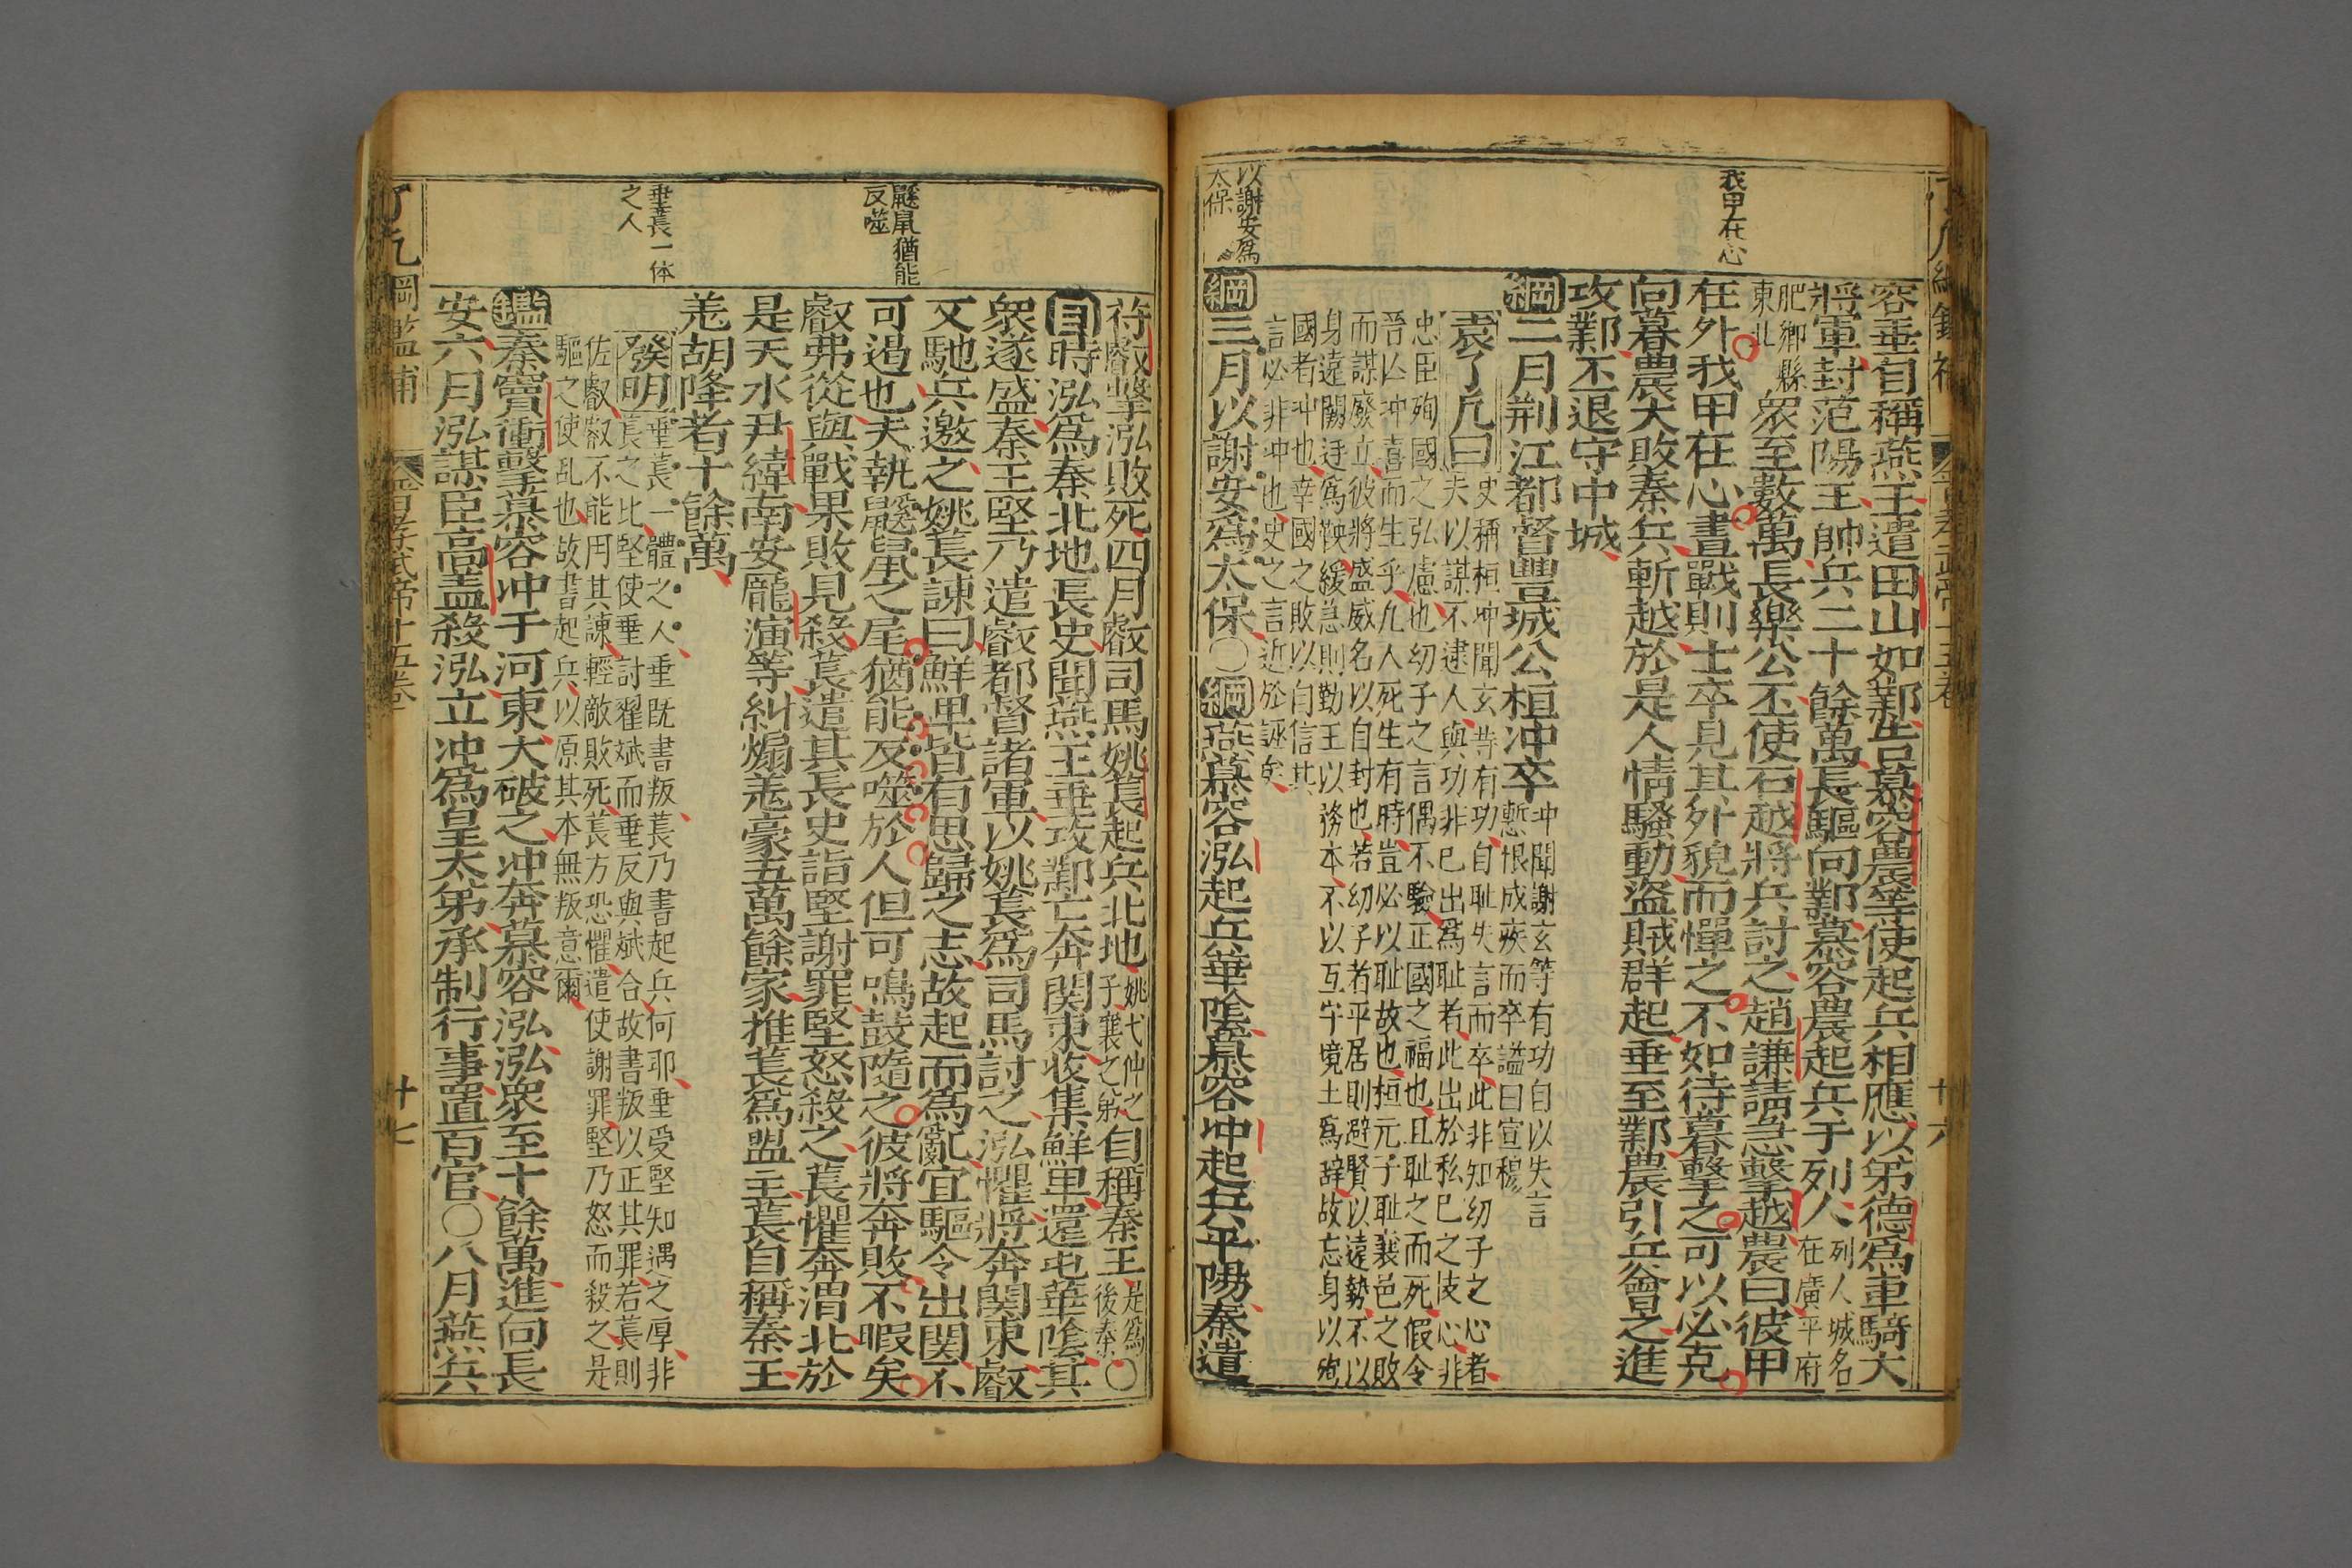 我甲在心
以謝安爲
太保
容垂自稱燕王遣田山如鄴告慕容農等使起兵相應以弟德爲車騎大
將軍封范陽王帥兵二十餘萬長驅向鄴慕容農起兵于列人列人城名
在廣平府
肥鄉縣
東北衆至數萬長樂公丕使石越將兵討之趙謙請急擊越農曰彼甲
在外我甲在心晝戰則士卒見其外貌而憚之不如待暮擊之可以必克
向暮農大敗秦兵斬越於是人情騷動盜賊群起垂至鄴農引兵會之進
攻鄴丕退守中城
綱二月荆江都督豐城公桓冲卒冲聞謝玄等有功自以失言
慙恨成疾而卒謚曰宣穆
袁了凡曰史稱桓冲聞玄等有功自耻失言而卒此非知幼子之心者
夫以謀不逮人與功非已出爲耻者此出於私已之忮心非
忠臣殉國之弘慮也幼子之言偶不驗正國之福也且耻之而死假令
晉亾冲喜而生乎凡人死生有時豈必以耻故也桓元子耻襄邑之敗
而謀廢立彼將盛威名以自封也若幼子者平居則避賢以遠勢不以
身遠闕廷爲鞅緩急則勤王以務本不以互牛境土爲辭故忘身以殉
國者冲也幸國之敗以自信其
言必非冲也史之言近於誣矣
綱三月以謝安爲太保〇綱燕慕容泓起兵華陰慕容冲起兵平陽秦遣
了凡綱鑑補 晉孝武帝十五卷 廿六
鼷鼠猶能
反噬
垂萇一体
之人
苻叡擊泓敗死四月叡司馬姚萇起兵北地姚弋仲之
子襄之弟自稱秦王是爲
後秦〇
目時泓爲秦北地長史聞燕王垂攻鄴亡奔関東收集鮮卑還屯華陰其
衆遂盛秦王堅乃遣叡都督諸軍以姚萇爲司馬討之泓懼將奔関東叡
又馳兵邀之姚萇諫曰鮮卑皆有思歸之志故起而爲亂宜驅令出関不
可遏也夫執鼷鼠之尾猶能反噬於人但可鳴鼓隨之彼將奔敗不暇矣
叡弗從與戰果敗見殺萇遣其長史詣堅謝罪堅怒殺之萇懼奔渭北於
是天水尹緯南安龐演等糾煽羌豪五萬餘家推萇爲盟主萇自稱秦王
羌胡降者十餘萬
發明垂萇一體之人垂既書叛萇乃書起兵何耶垂受堅知遇之厚非
萇之比堅使垂討翟斌而垂反與斌合故書叛以正其罪若萇則
佐叡叡不能用其諫輕敵敗死萇方恐懼遣使謝罪堅乃怒而殺之是
驅之使乱也故書起兵以原其本無叛意爾
鑑秦竇衝擊慕容冲于河東大破之冲奔慕容泓泓衆至十餘萬進向長
安六月泓謀臣高盖殺泓立冲爲皇太弟承制行事置百官〇八月燕兵
了凡綱鑑補 晉孝武帝十五卷 廿七